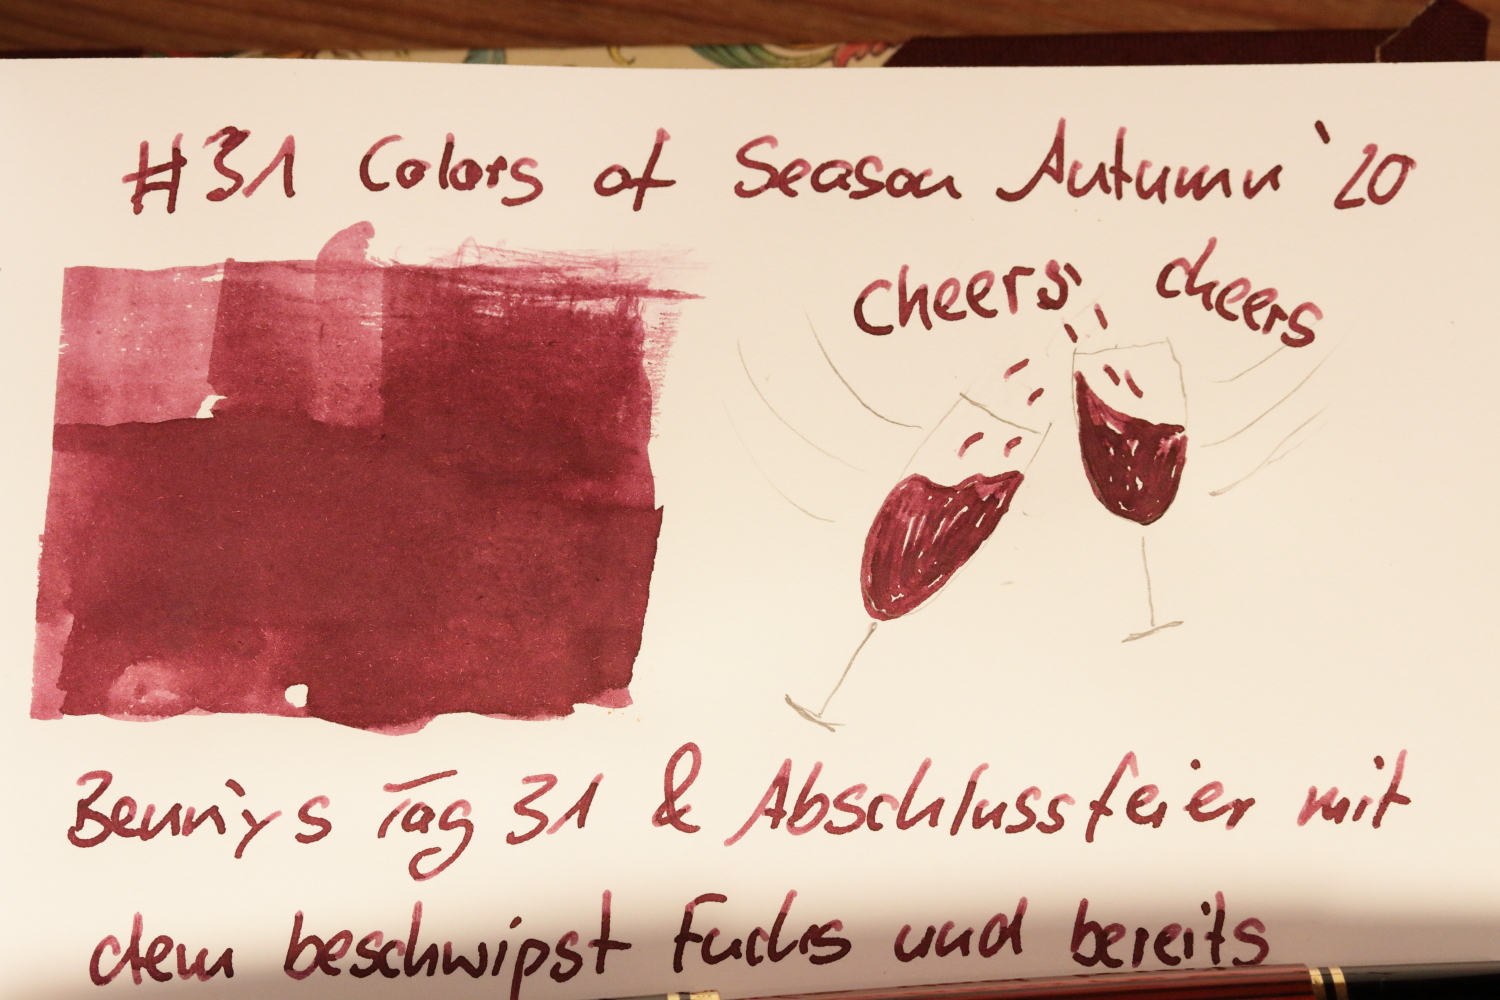 #31 Colors of Season Autumn '20
cheers cheers
Bennys Tag 31 & Abschlussfeier mit
dem beschwipst Fuchs und bereits